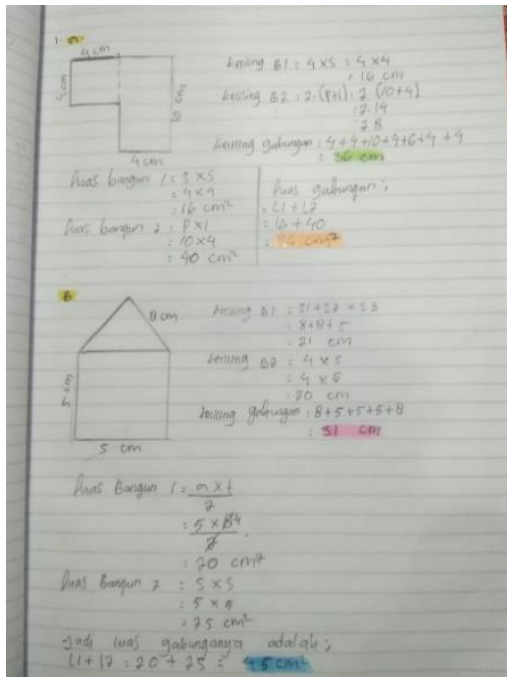 1. a.
4 cm
4 cm
10 cm
4 cm
keliling B1 : 4 x s : 4 x 4
: 16 cm
keliling B2 : 2 . (p+l) : 2 (10+4)
: 2.14
: 28
keliling gabungan : 4 + 4 + 10 + 4 + 6 + 4 + 4
: 36 cm
Luas bangun 1 : s x s
: 4 x 4
: 16 cm²
Luas bangun 2 : P x l
: 10 x 4
: 40 cm²
Luas gabungan ;
: L1 + L2
: 16 + 40
: 56 cm²
B
8 cm
5 cm
5 cm
keliling B1 : S1 + S2 + S3
: 8 + 8 + 5
: 21 cm
keliling B2 : 4 x s
: 4 x 5
: 20 cm
keliling gabungan : 8 + 5 + 5 + 5 + 8
: 31 cm
Luas Bangun 1 = a x t
2
: 5 x 8 4
2
: 20 cm²
Luas Bangun 2 : s x s
: 5 x 5
: 25 cm²
Jadi luas gabunganya adalah ;
L1 + L2 : 20 + 25 : 45 cm²